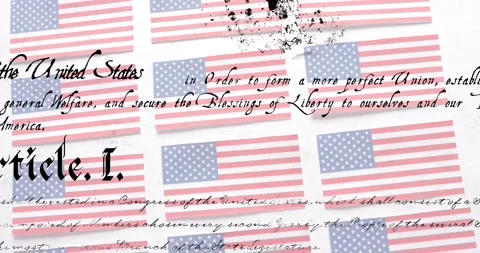 the United States in Order to form a more perfect Union, establ
general Welfare, and secure the Blessings of Liberty to ourselves and our
America.
rticle. I.
vested in a Congress of the United States, which shall consist of a
composed of Members chosen every second Year by the People of the several
most Branch of the State Legislature.